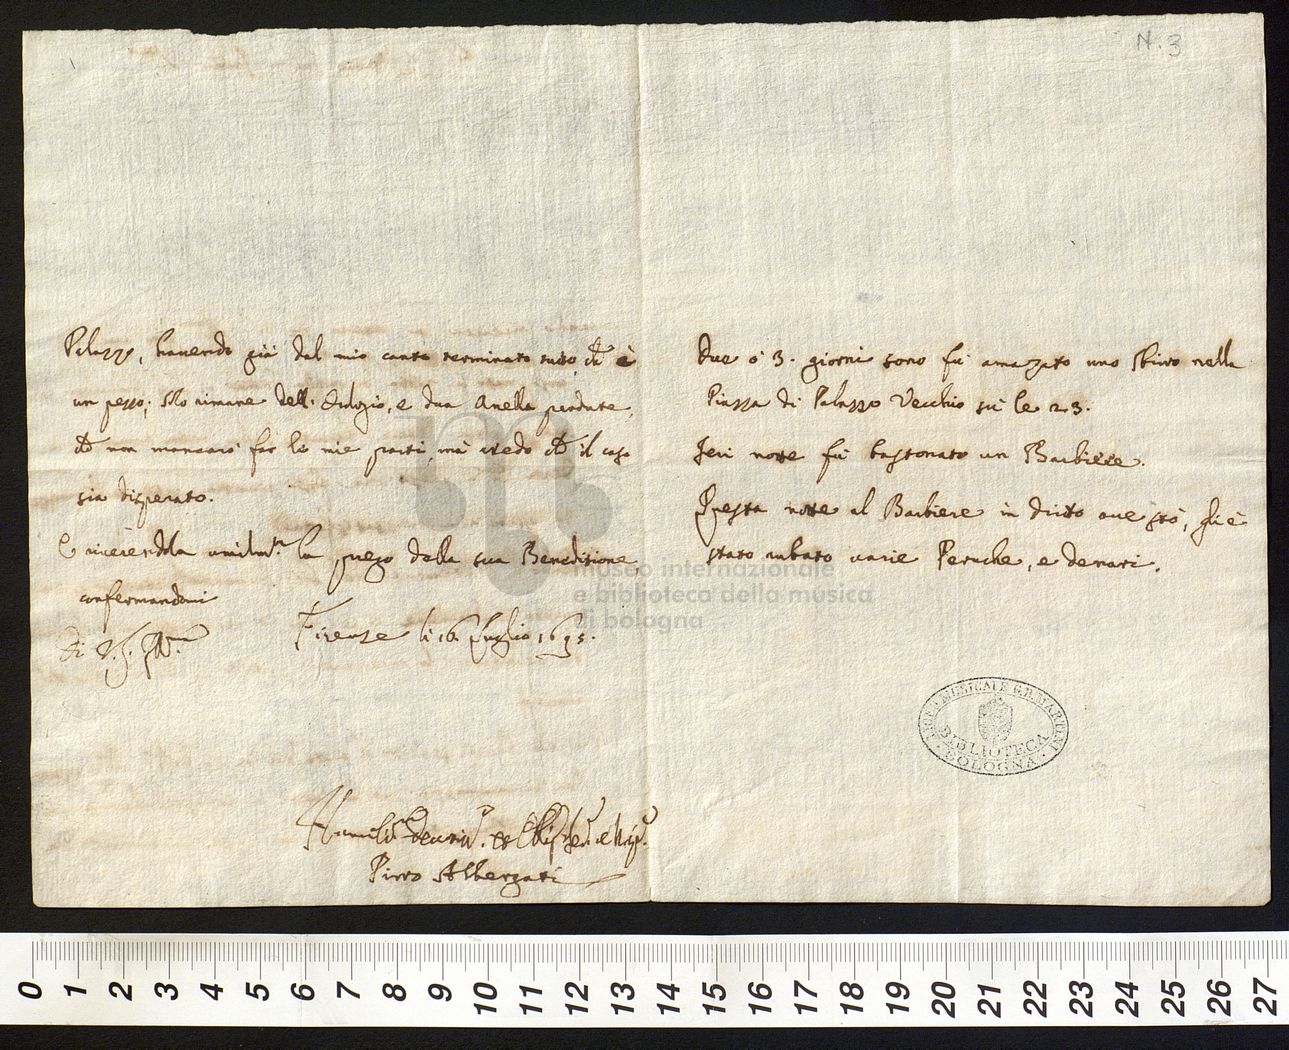 N. 3
Palazzo, havendo già dal mio canto terminato tutto, che è
un pezzo; solo rimane dell' Orologio, e due Anella perdute,
che non mancarò far le mie parti, mà credo che il caso
sia disperato.
E riverendola umilm.te la prego della sua Beneditione
confermandomi
Di V. S. Ill.ma
Firenze li 16. Luglio 1695.
Pirro Albergati
Due ò 3. giorni sono fù amazato uno sbirro nella
Piazza di Palazzo Vecchio sù le 23.
Jeri notte fù bastonato un Barbiere.
Questa notte al Barbiere in dritto ove stò, gli è
stato rubato varie Peruche, e denari.
museo internazionale
e biblioteca della musica
di bologna
LICEO MUSICALE G.B. MARTINI
BIBLIOTECA
BOLOGNA
0 1 2 3 4 5 6 7 8 9 10 11 12 13 14 15 16 17 18 19 20 21 22 23 24 25 26 27